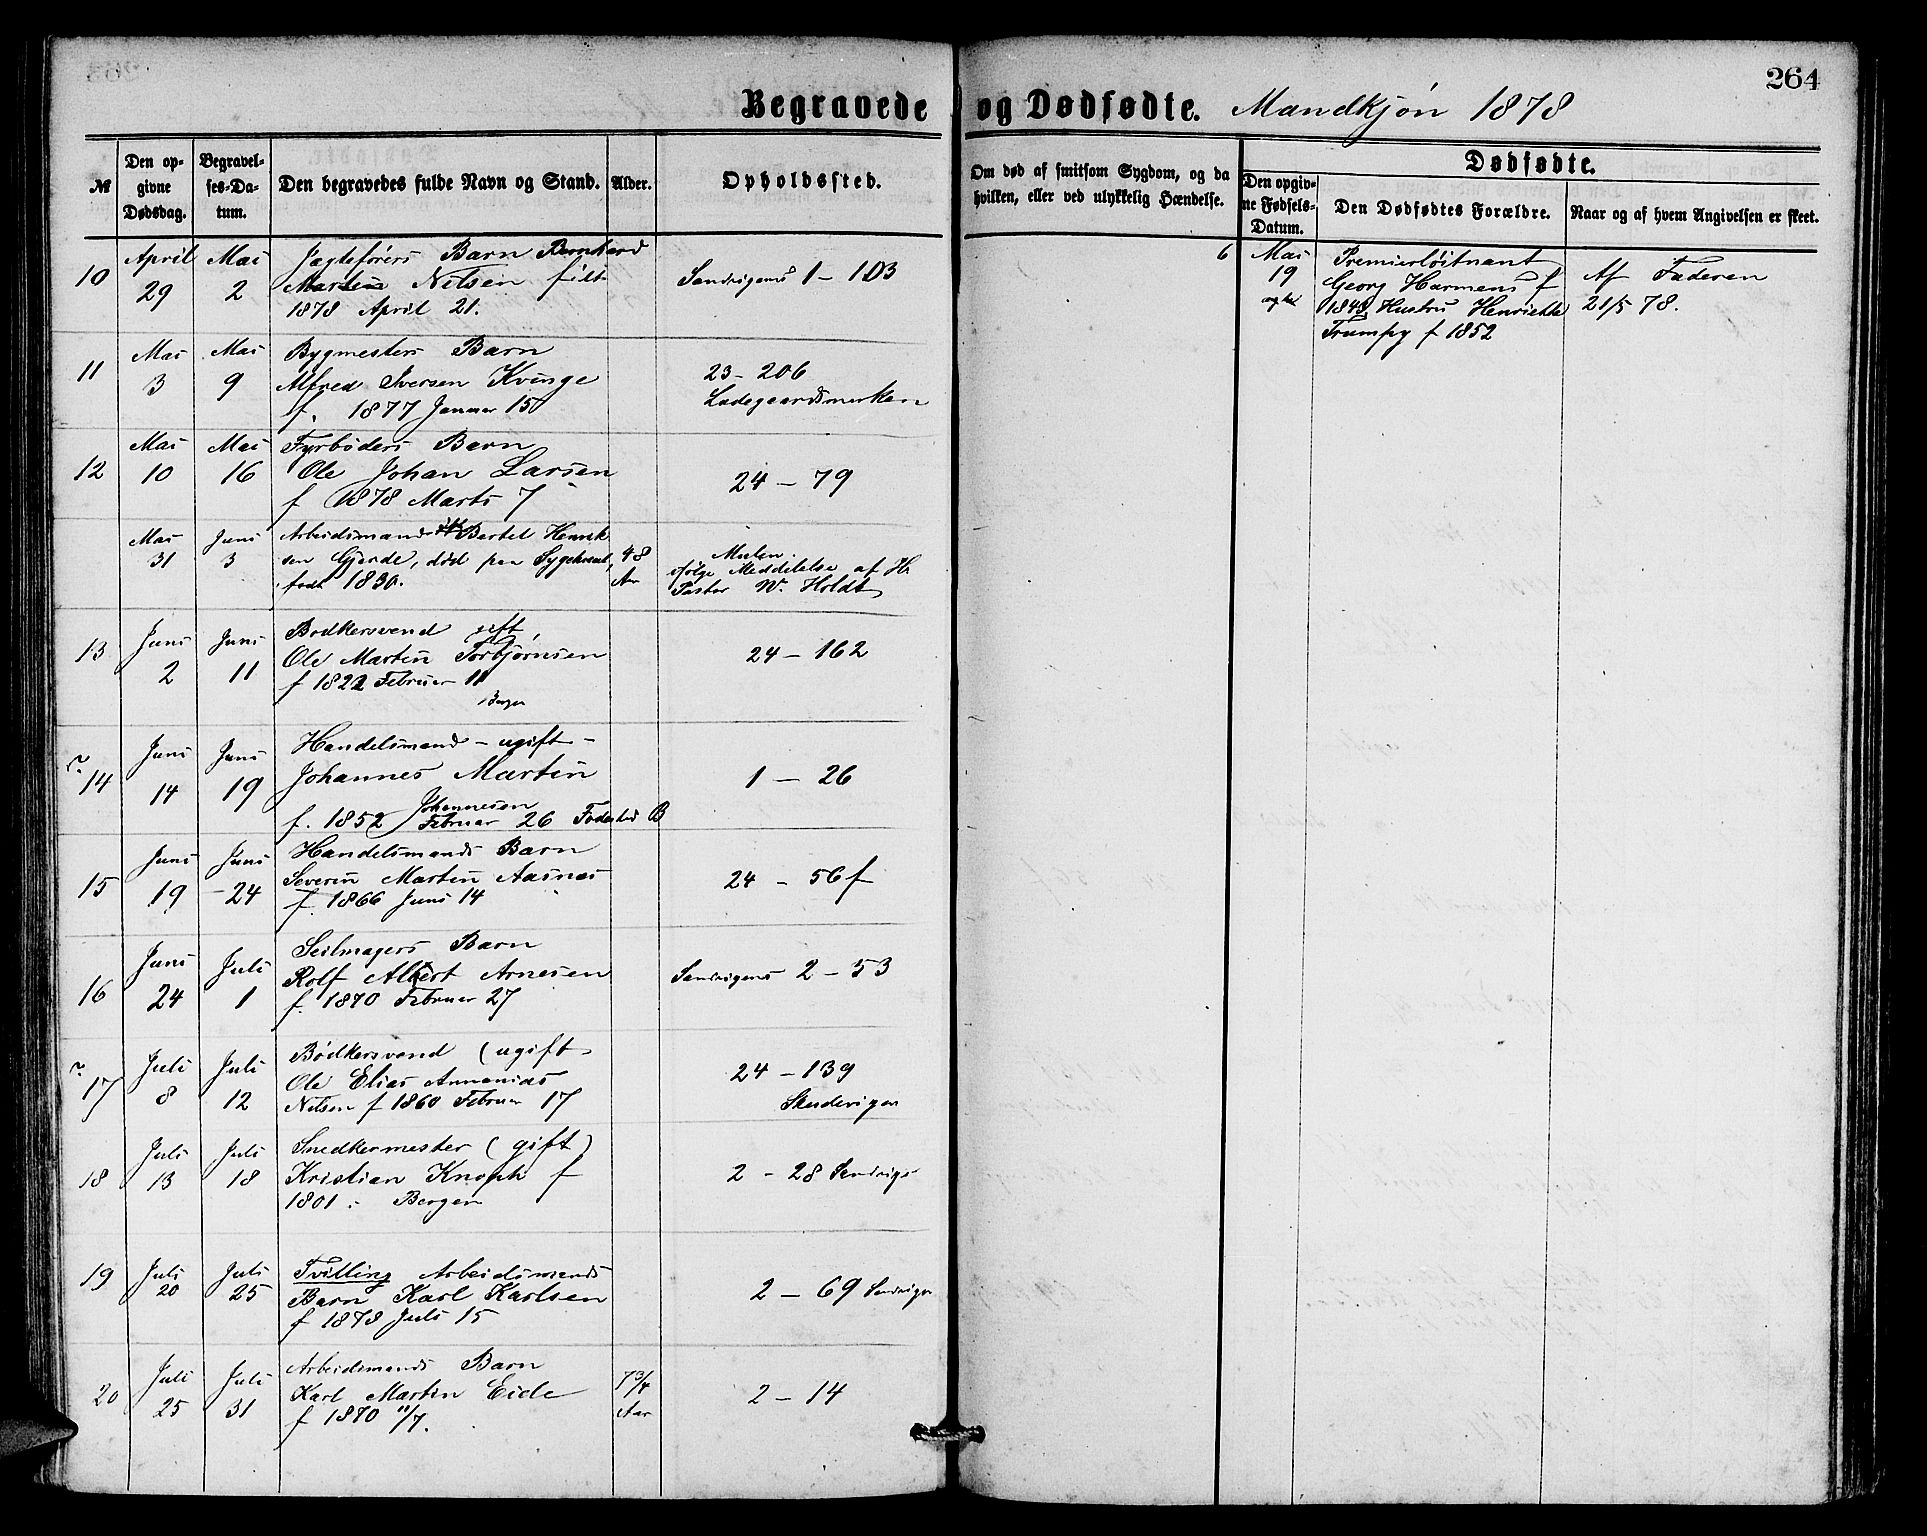 264
Begravede og Dødfødte. Mandkjøn 1878
№
Den op-
givne
Dødsdag.
Begravel-
ses-Da-
tum.
Den begravedes fulde Navn og Stand.
Alder.
Opholdssted.
Om død af smitsom Sygdom, og da
hvilken, eller ved ulykkelig Hændelse.
Dødfødte.
Den opgiv-
ne Fødsels-
Datum.
Den Dødfødtes Forældre.
Naar og af hvem Angivelsen er skeet.
10
April
29
Mai
2
Jagtefører Barn Bernhard
Martin Nilsen født
1878 April 21.
Sandvigens 1 - 103
6
Mai
19
Premierløitnant
Georg Harmens f
Hustru Henriette
Trumpy f 1852
Af Faderen
21/5 78.
11
Mai
3
Mai
9
Bygmesters Barn
Alfred Iversen Kvinge
f. 1877 Januar 15
23 - 206
Ladegaardsmarken
12
Mai
10
Mai
16
Fyrbøders Barn
Ole Johan Larsen
f 1878 Marts 7
24 - 79
Mai
31
Juni
3
Arbeidsmand Bertel Henrik
sen Gjerde, død paa
født 1830.
48
Aar
Mulen.
ifølge Meddelelse af Hr
Pastor W. Holdt
13
Juni
2
Juni
11
Bødkersvend gift
Ole Martin Torbjørnsen
f 1822 Februar 11
Bergen
24 - 162
14
Juni
14
Juni
19
Handelsmand - ugift -
Johannes Martin
Johannesen
f. 1852 Februar 26 Fødested B
1 - 26
15
Juni
19
Juni
24
Handelsmands Barn
Severin Martin Aasnes
f. 1866 Juni 14
24 - 56f
16
Juni
24
Juli
1
Seilmagers Barn
Rolf Albert Arnesen
f. 1870 Februar 27
Sandvigens 2 - 53
17
Juli
8
Juli
12
Bødkersvend (ugift
Ole Elias Annanias
Nilsen f 1860 Februar 17
24 - 139
Skudevigen
18
Juli
13
Juli
18
Snedkermester (gift)
Kristian Knoph f
1801 . Bergen
2 - 28 Sandvige
19
Juli
20
Juli
25
Tvilling Arbeidsmands
Barn Karl Karlsen
f 1878 Juli 15
2 - 69 Sandvigen
20
Juli
25
Juli
31
Arbeidsmands Barn
Karl Martin Eide
f 1870 11/7.
7 3/4
Aar
2 - 14